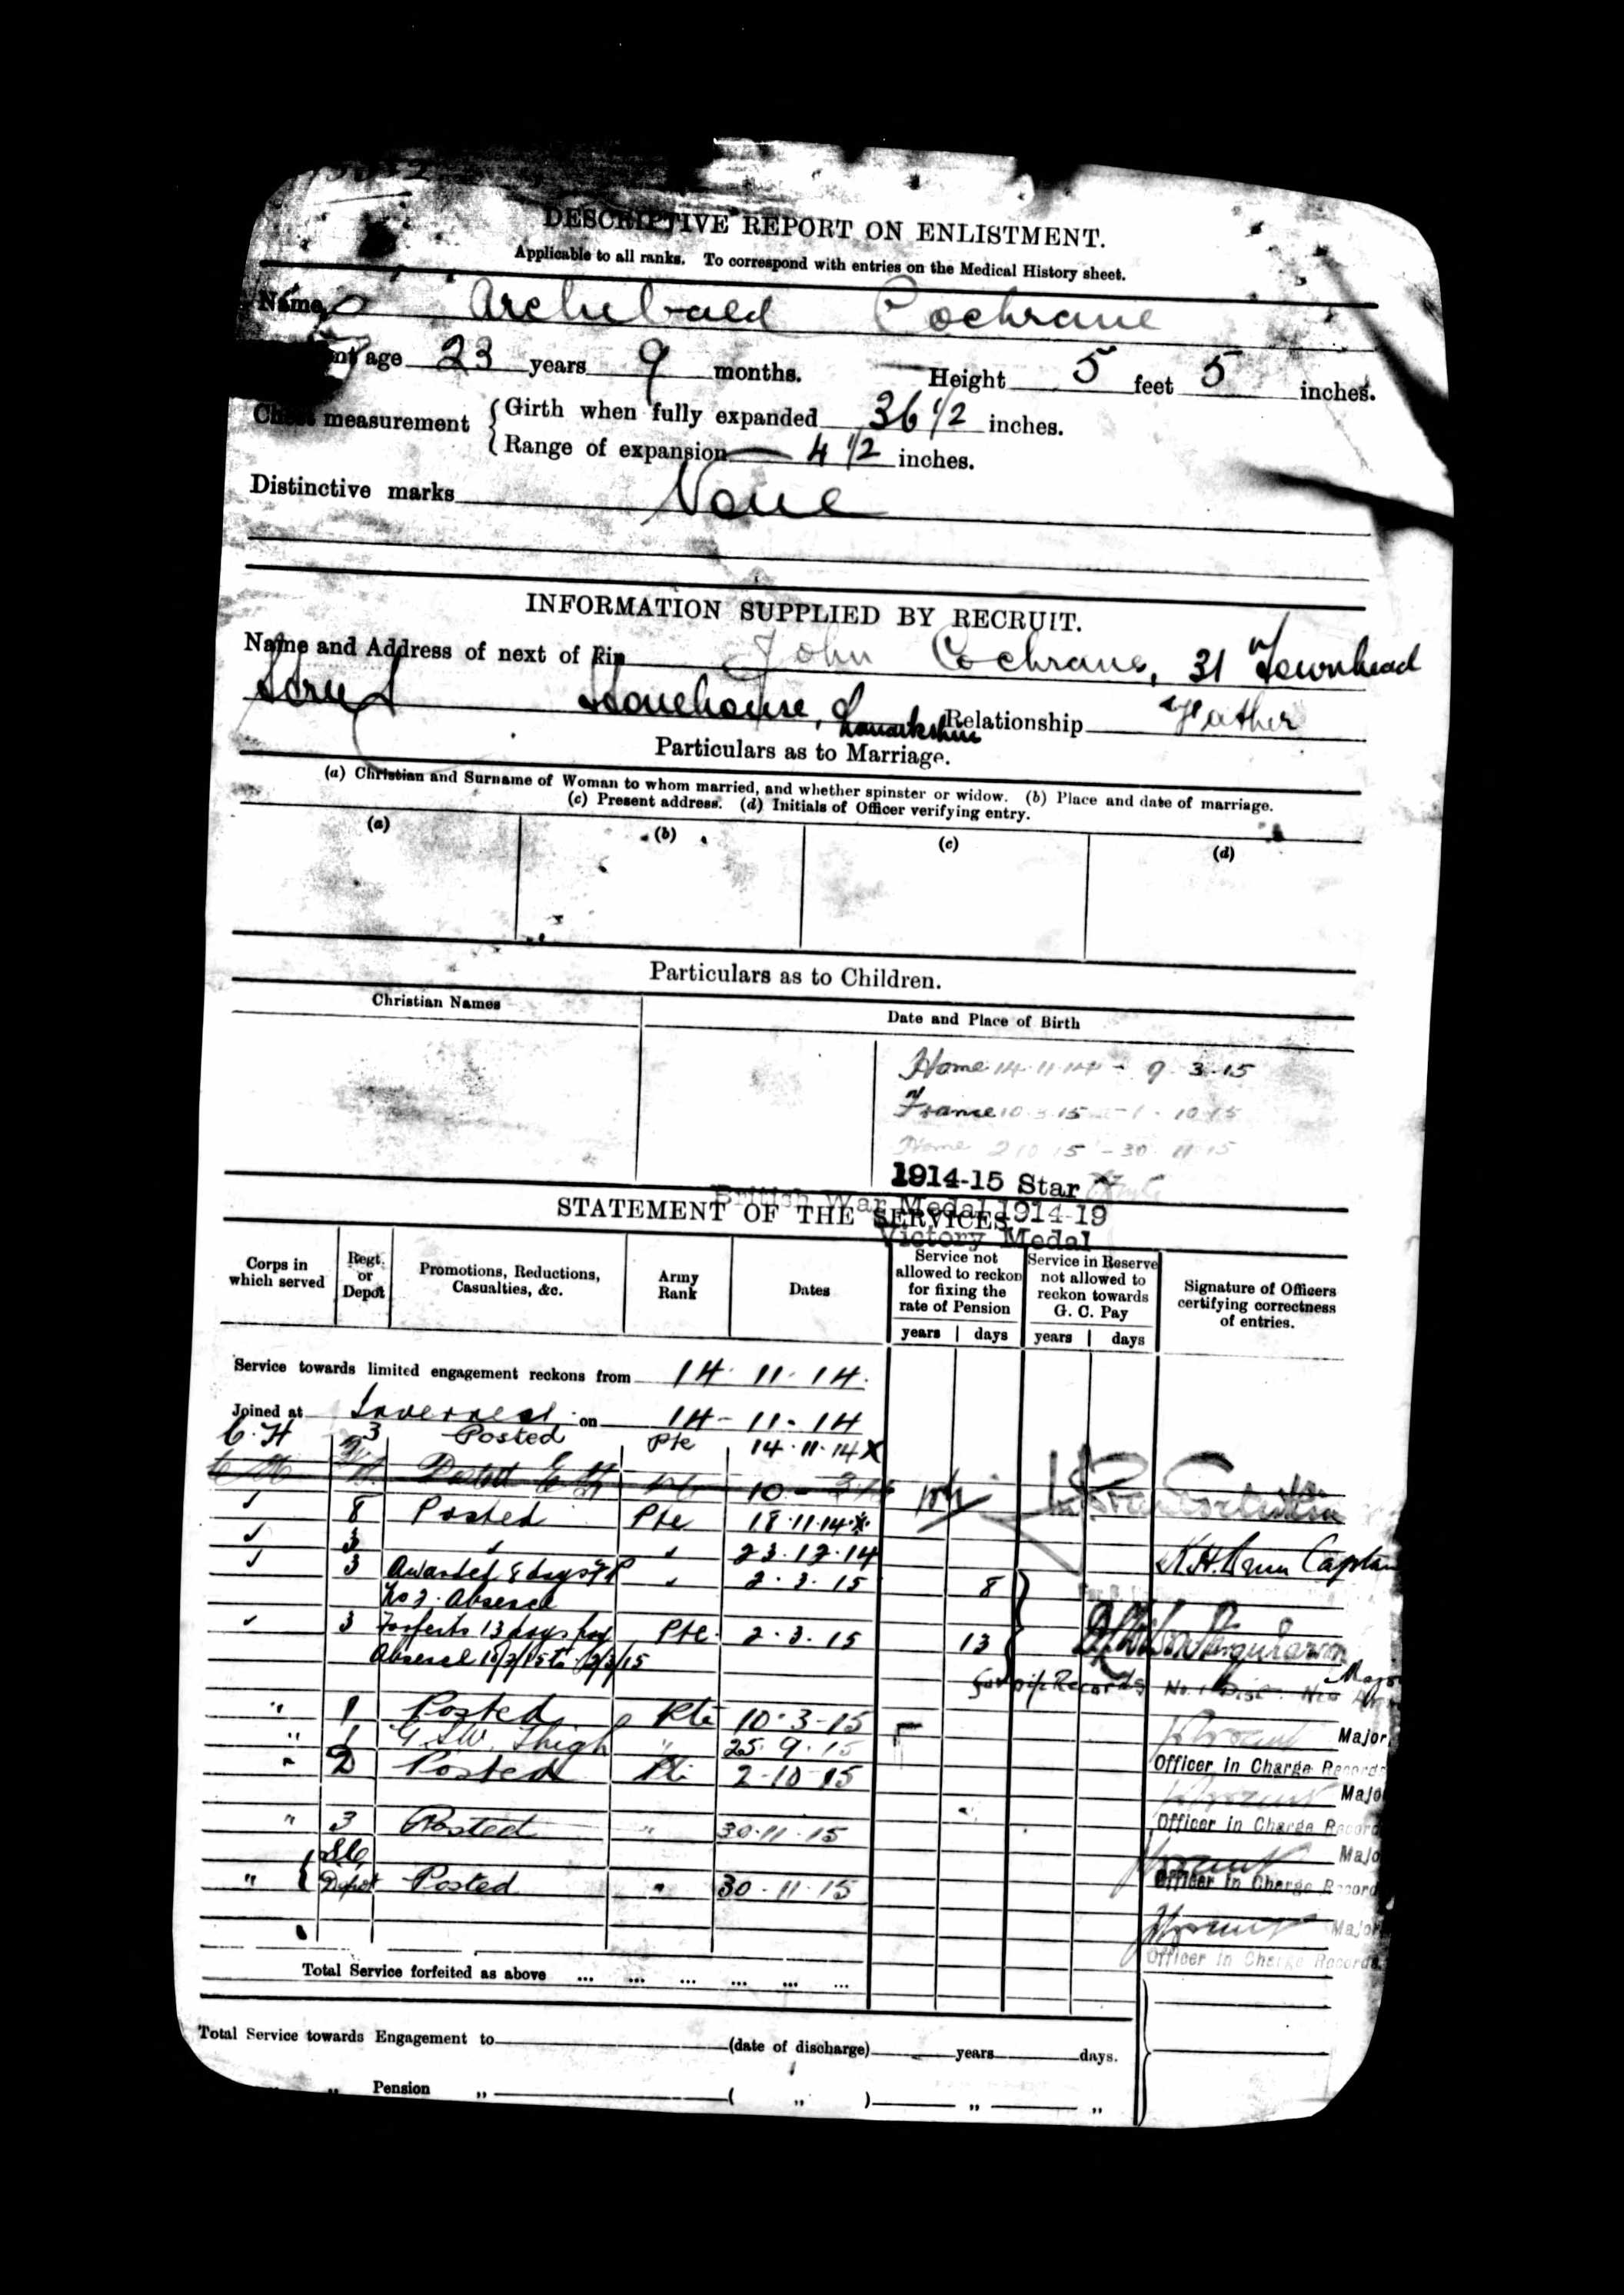 DESCRIPTIVE REPORT ON ENLISTMENT.
Applicable to all ranks. To correspond with entries on the Medical History sheet.
Name Archibald Cochrane
age 23 years 9 months. Height 5 feet 5 inches.
Chest measurement { Girth when fully expanded 36 1/2 inches.
Range of expansion 4 1/2 inches.
Distinctive marks None
INFORMATION SUPPLIED BY RECRUIT.
Name and Address of next of Kin John Cochrane, 31 Townhead
Street Stonehouse, Lanarkshire Relationship Father
Particulars as to Marriage.
(a) Christian and Surname of Woman to whom married, and whether spinster or widow. (b) Place and date of marriage.
(c) Present address. (d) Initials of Officer verifying entry.
(a) (b) (c) (d)
Particulars as to Children.
Christian Names Date and Place of Birth
Home 14.11.14 - 9.3.15
France 10.3.15 - 1.10.15
Home 2.10.15 - 30.11.15
1914-15 Star
British War Medal 1914-19
STATEMENT OF THE SERVICES
Victory Medal
Corps in which served Regt. or Depôt Promotions, Reductions, Casualties, &c. Army Rank Dates Service not allowed to reckon for fixing the rate of Pension Service in Reserve not allowed to reckon towards G. C. Pay Signature of Officers certifying correctness of entries.
years days years days
Service towards limited engagement reckons from 14.11.14.
Joined at Inverness on 14-11-14
C.H 3 Posted Pte 14.11.14 X
10-3-15
8 Posted Pte 18.11.14
3 23.12.14 Captain
3 Awarded 8 days 2.3.15 8
No 2. Absence
3 Forfeits 13 days pay Pte. 2.3.15 13
Absence
for Records No. 1 Dist.
" 1 Posted Pte 10.3-15 Major
" 1 G.S.W. Thigh " 25.9.15
" D Posted Pte 2-10-15 Officer in Charge Records
Major
" 3 Posted " 30.11.15 Officer in Charge Records
Major
" { Depot Posted " 30.11.15 Officer in Charge Records
Major
Officer in Charge Records.
Total Service forfeited as above ... ... ... ... ... ...
Total Service towards Engagement to (date of discharge) years days.
" Pension " ( " ) " "